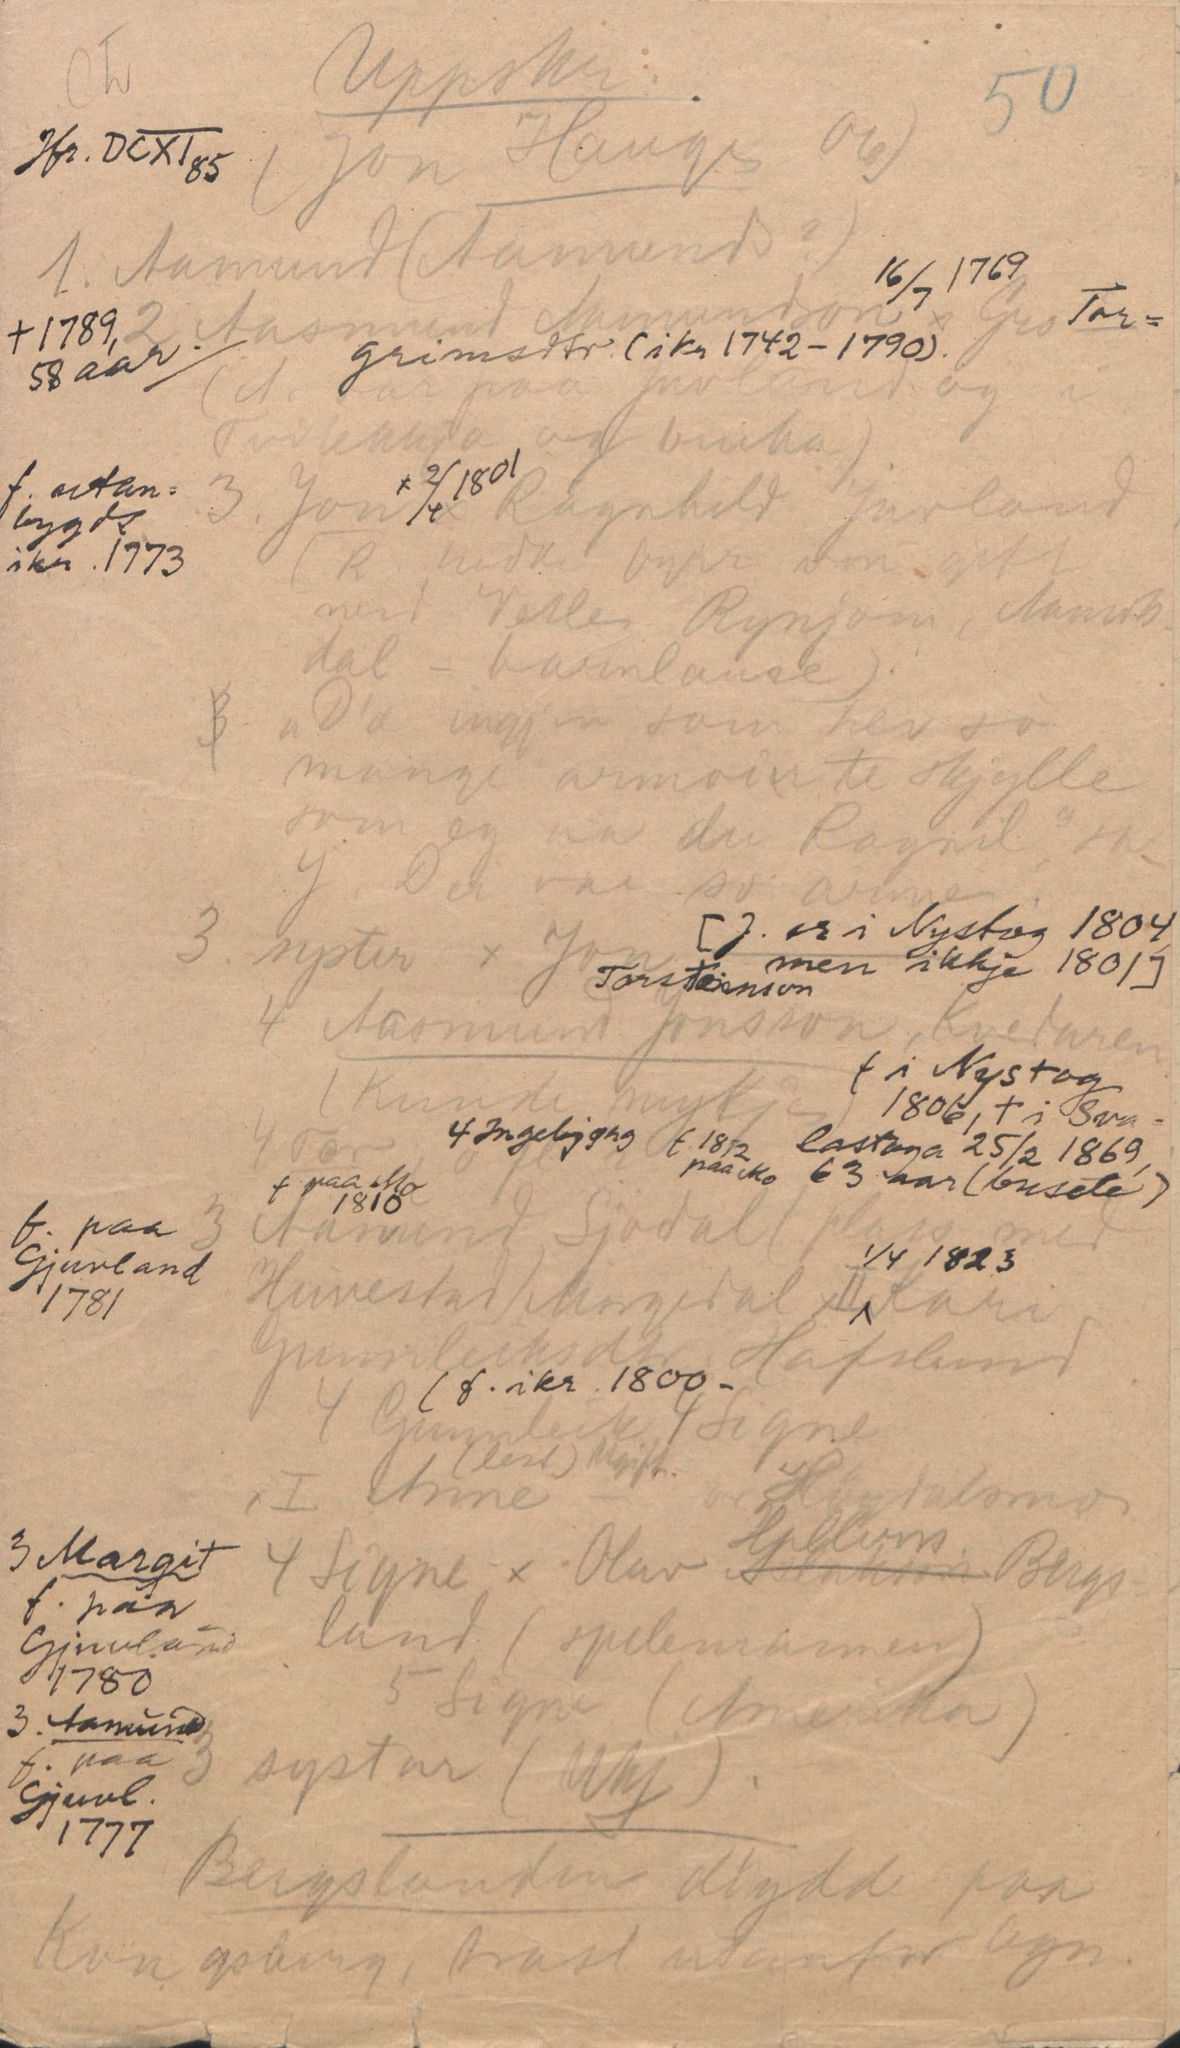 50
Uppskr.
Jfr. DCXI 85
(Jon Hauge
1. Aamund (Aamund ?)
16/7 1769
+ 1789, 58 aar
2. Aasmund Aamundson x Gro Tor=
grimsdtr. (ikr 1742 – 1790).
(A. var paa Juvland og i
og
f. utan=
bygds
ikr. 1773
x 9/4 1801
3. Jon x Ragnhild Juvland
(R hadde fyrr vore gift
med Vetle Rynjom,
dal – barnlause).
"D'æ ingjen som hev so
mange armoir te skjylle
som eg aa du Ragnil" sa
J. Dei var so arme.
3 syster x Jon Torsteinson
[J. er i Nystog 1804,
men ikkje 1801]
4 Aasmund Jonsson, Kvedaren
(Kunde mykje)
f i Nystog
1806, + i Sva-
lastoga 25/2 1869,
63 aar (busete)
4 Ingebjørg f 1812
paa Mo
4 Tor
f paa Mo
1810
f. paa
Gjuvland
1781
3 Aamund Sjodal (plass med
Huvestad) Morgedal x II Kari
1/4 1823
Gunnleiksdtr. Hafslund
(f. ikr. 1800 –
4 Gunnleik 4 Signe
(lest) Ugift.
x I Anne – Høgdalsmo
3 Margit
f. paa
Gjuvland
1780
4 Signe x Olav Bergs-
land (spelemannen)
5 Signe (Amerika)
3. Aamund
f. paa
Gjuvl.
1777
3 systar (Ukj).
Bergslandin døydde paa
Kongsberg, trast utanfor byn.